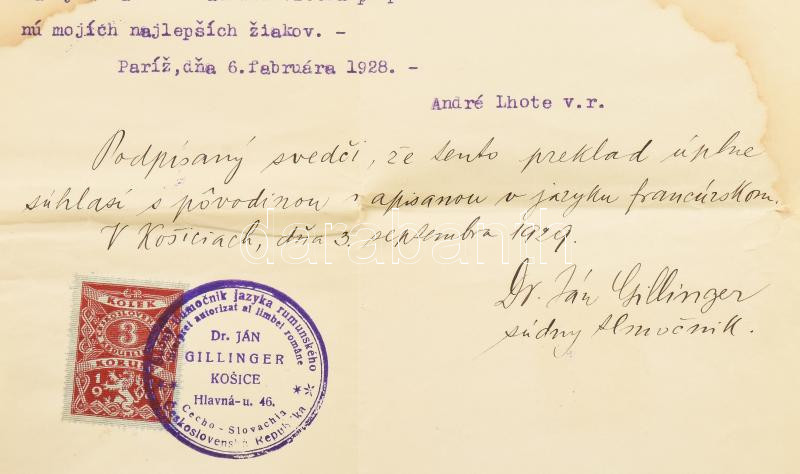 nú mojích najlepších žiakov. -
Paríž,dňa 6.fabruára 1928. -
André Lhote v.r.
Podpísaný svedčí, že tento preklad úplne
súhlasí s pôvodinou napisanou v jazyku francúrskom.
V Košiciach, dňa 3. septembra 1929.
Dr. Ján Gillinger
súdny tlmočník.
KOLEK
3
KORUNY
19
tlumočník jazyka rumunského
interpret autorizat al limbei române
Dr. JÁN
GILLINGER
KOŠICE
Hlavná-u. 46.
Cecho-Slovachia
Československá Republika
darabanth